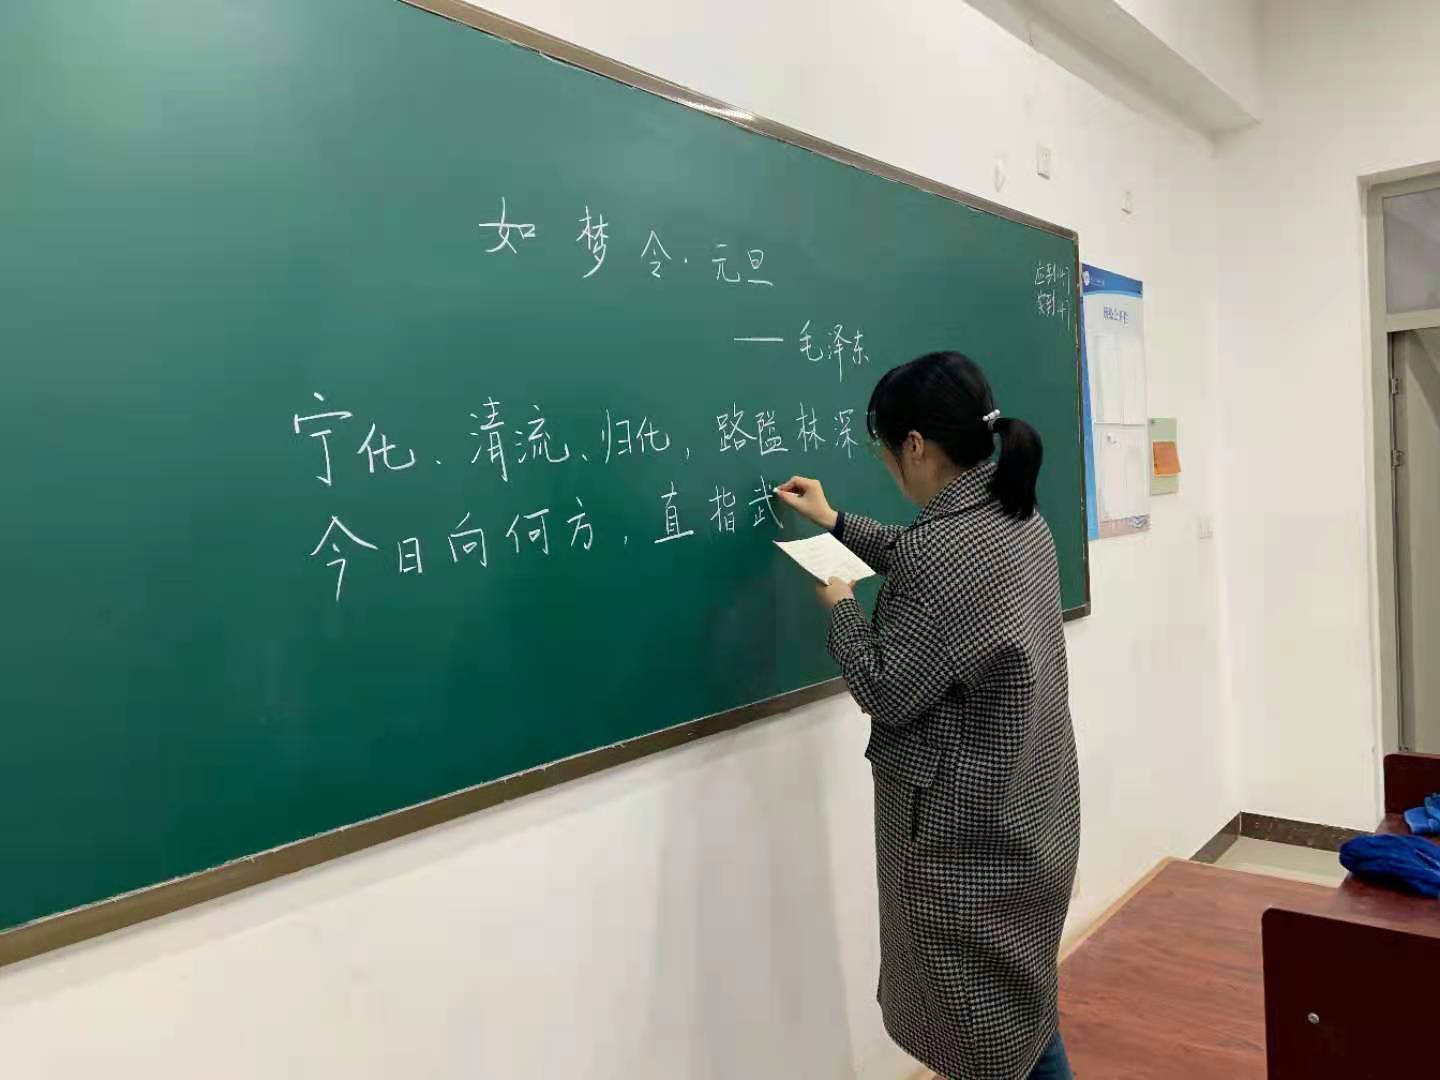 如梦令·元旦
——毛泽东
宁化、清流、归化，路隘林深
今日向何方，直指武
应到
实到